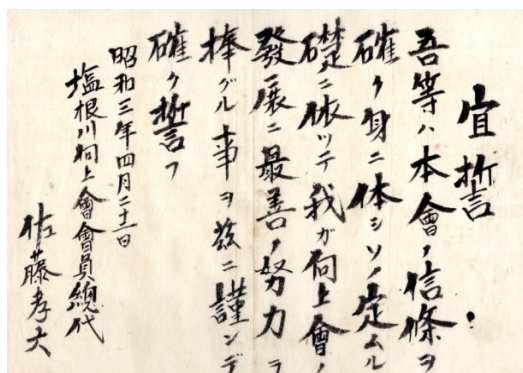 宣誓
吾等ハ本會ノ信條ヲ
確ク身ニ体シソノ定ムル
礎ニ依ッテ我ガ向上會ノ
發展ニ最善ノ努力ヲ
捧グル事ヲ茲ニ謹ンデ
確ク誓フ
昭和三年四月二十二日
塩根川向上會會員總代
佐藤孝